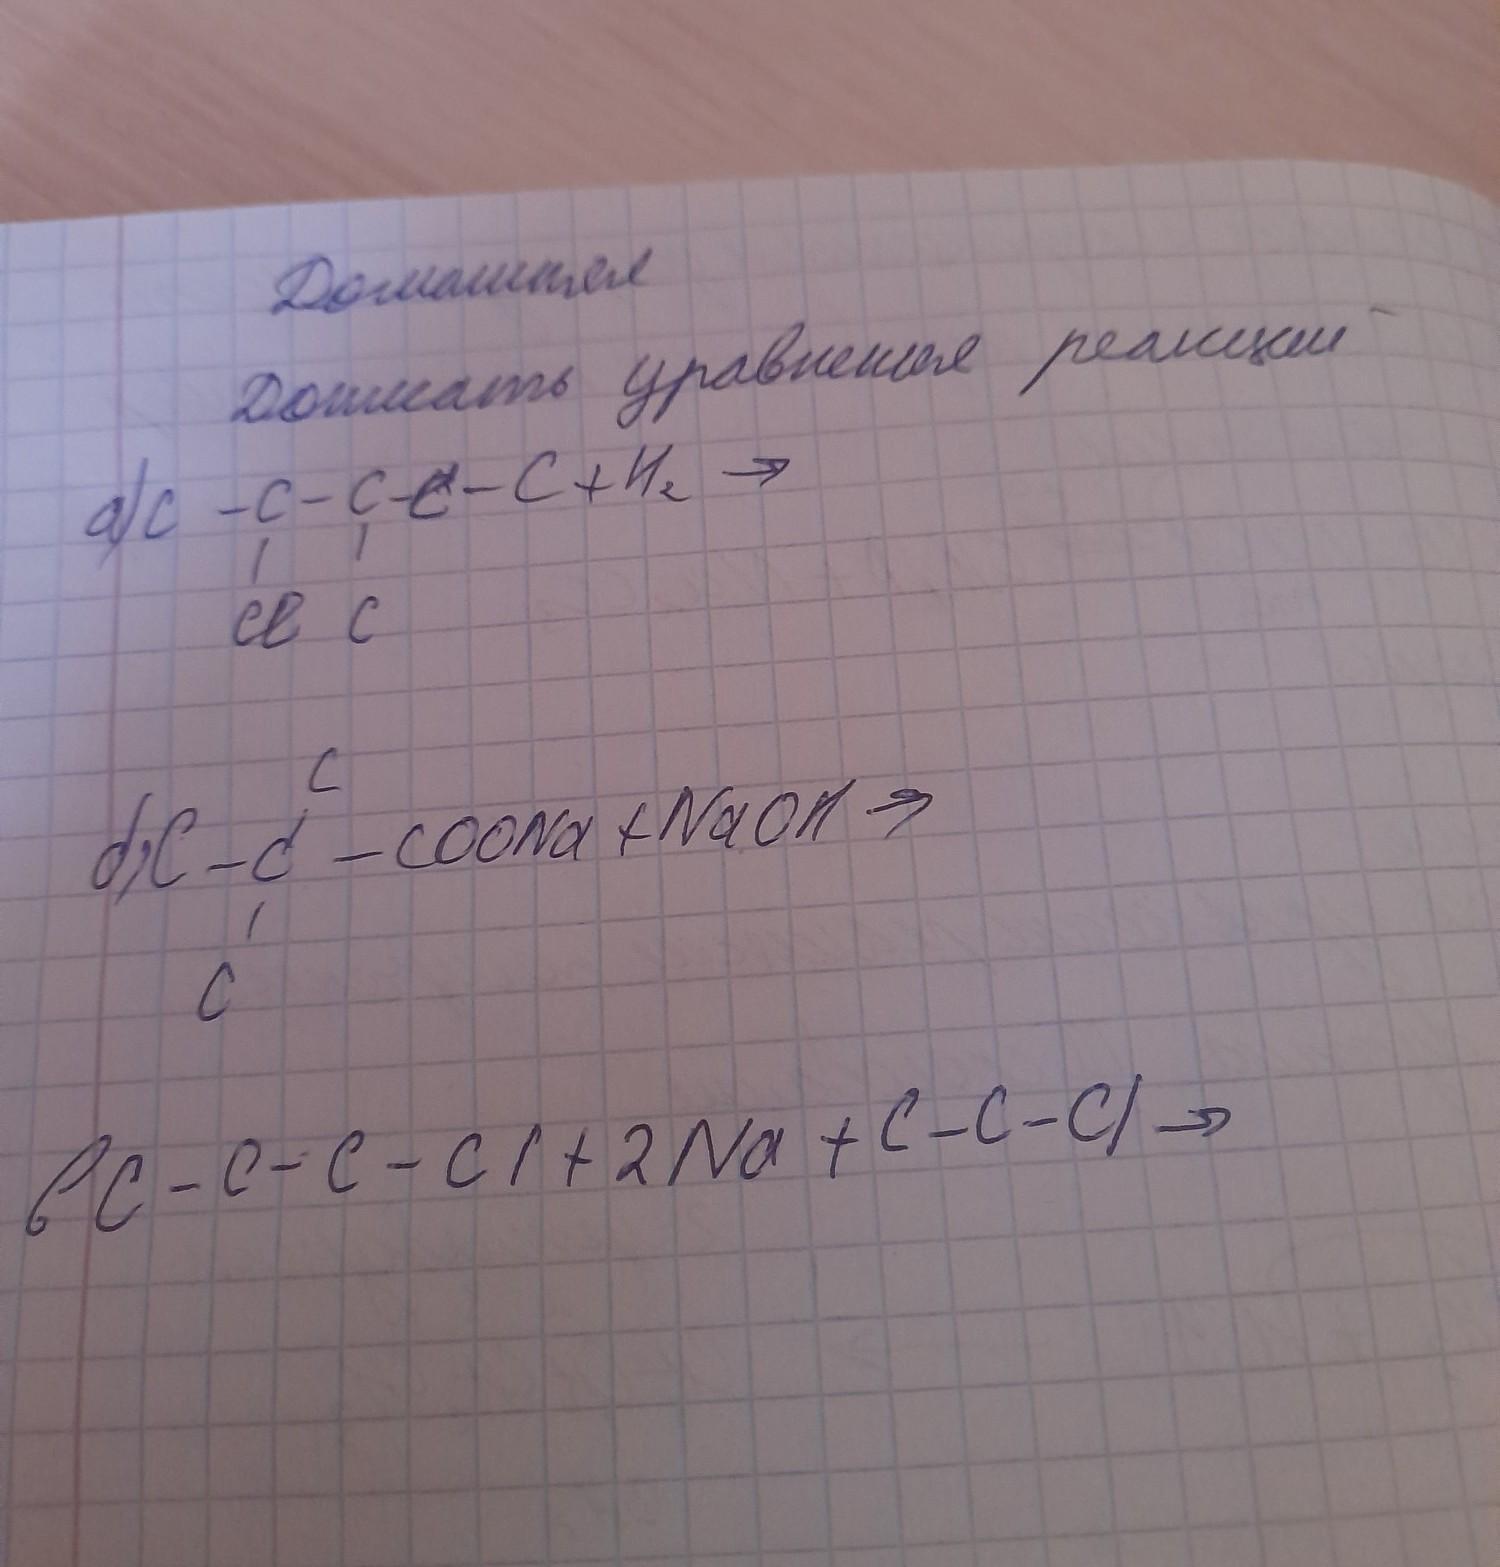 Домашняя
Дописать уравнения реакций
а) C - C - C - C - C + H₂ →
Cl C
C
б) C - C - COONa + NaOH →
C
в C - C - C - Cl + 2Na + C - C - Cl →